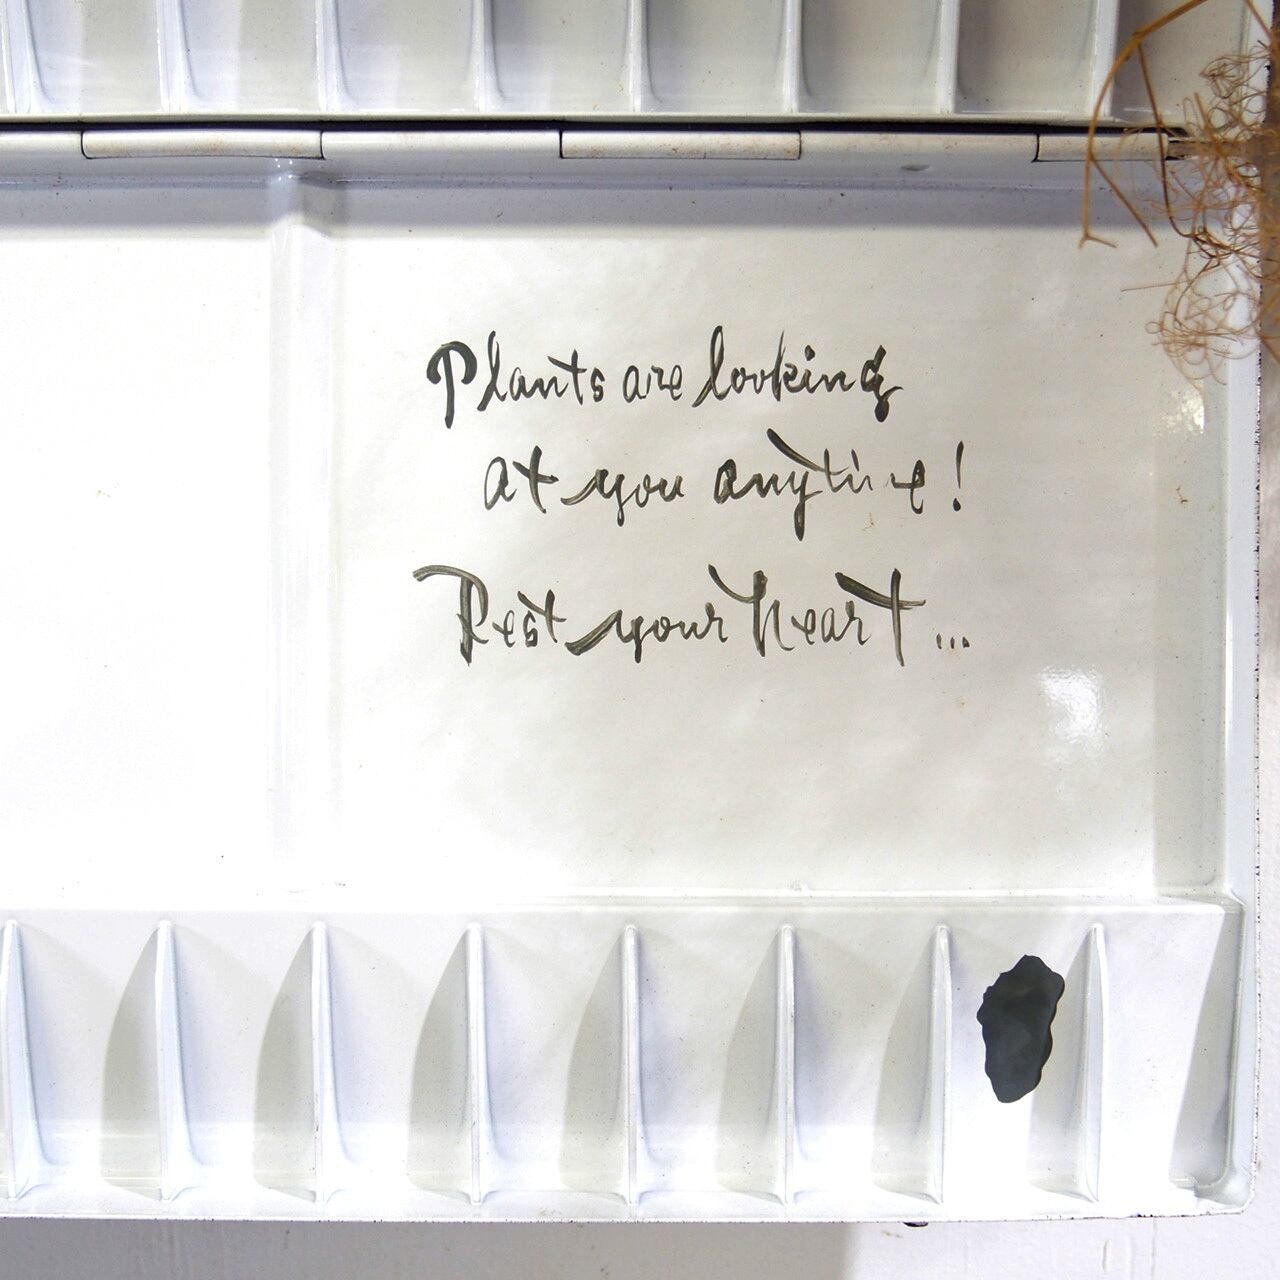 Plants are looking
at you anytime!
Rest your heart...